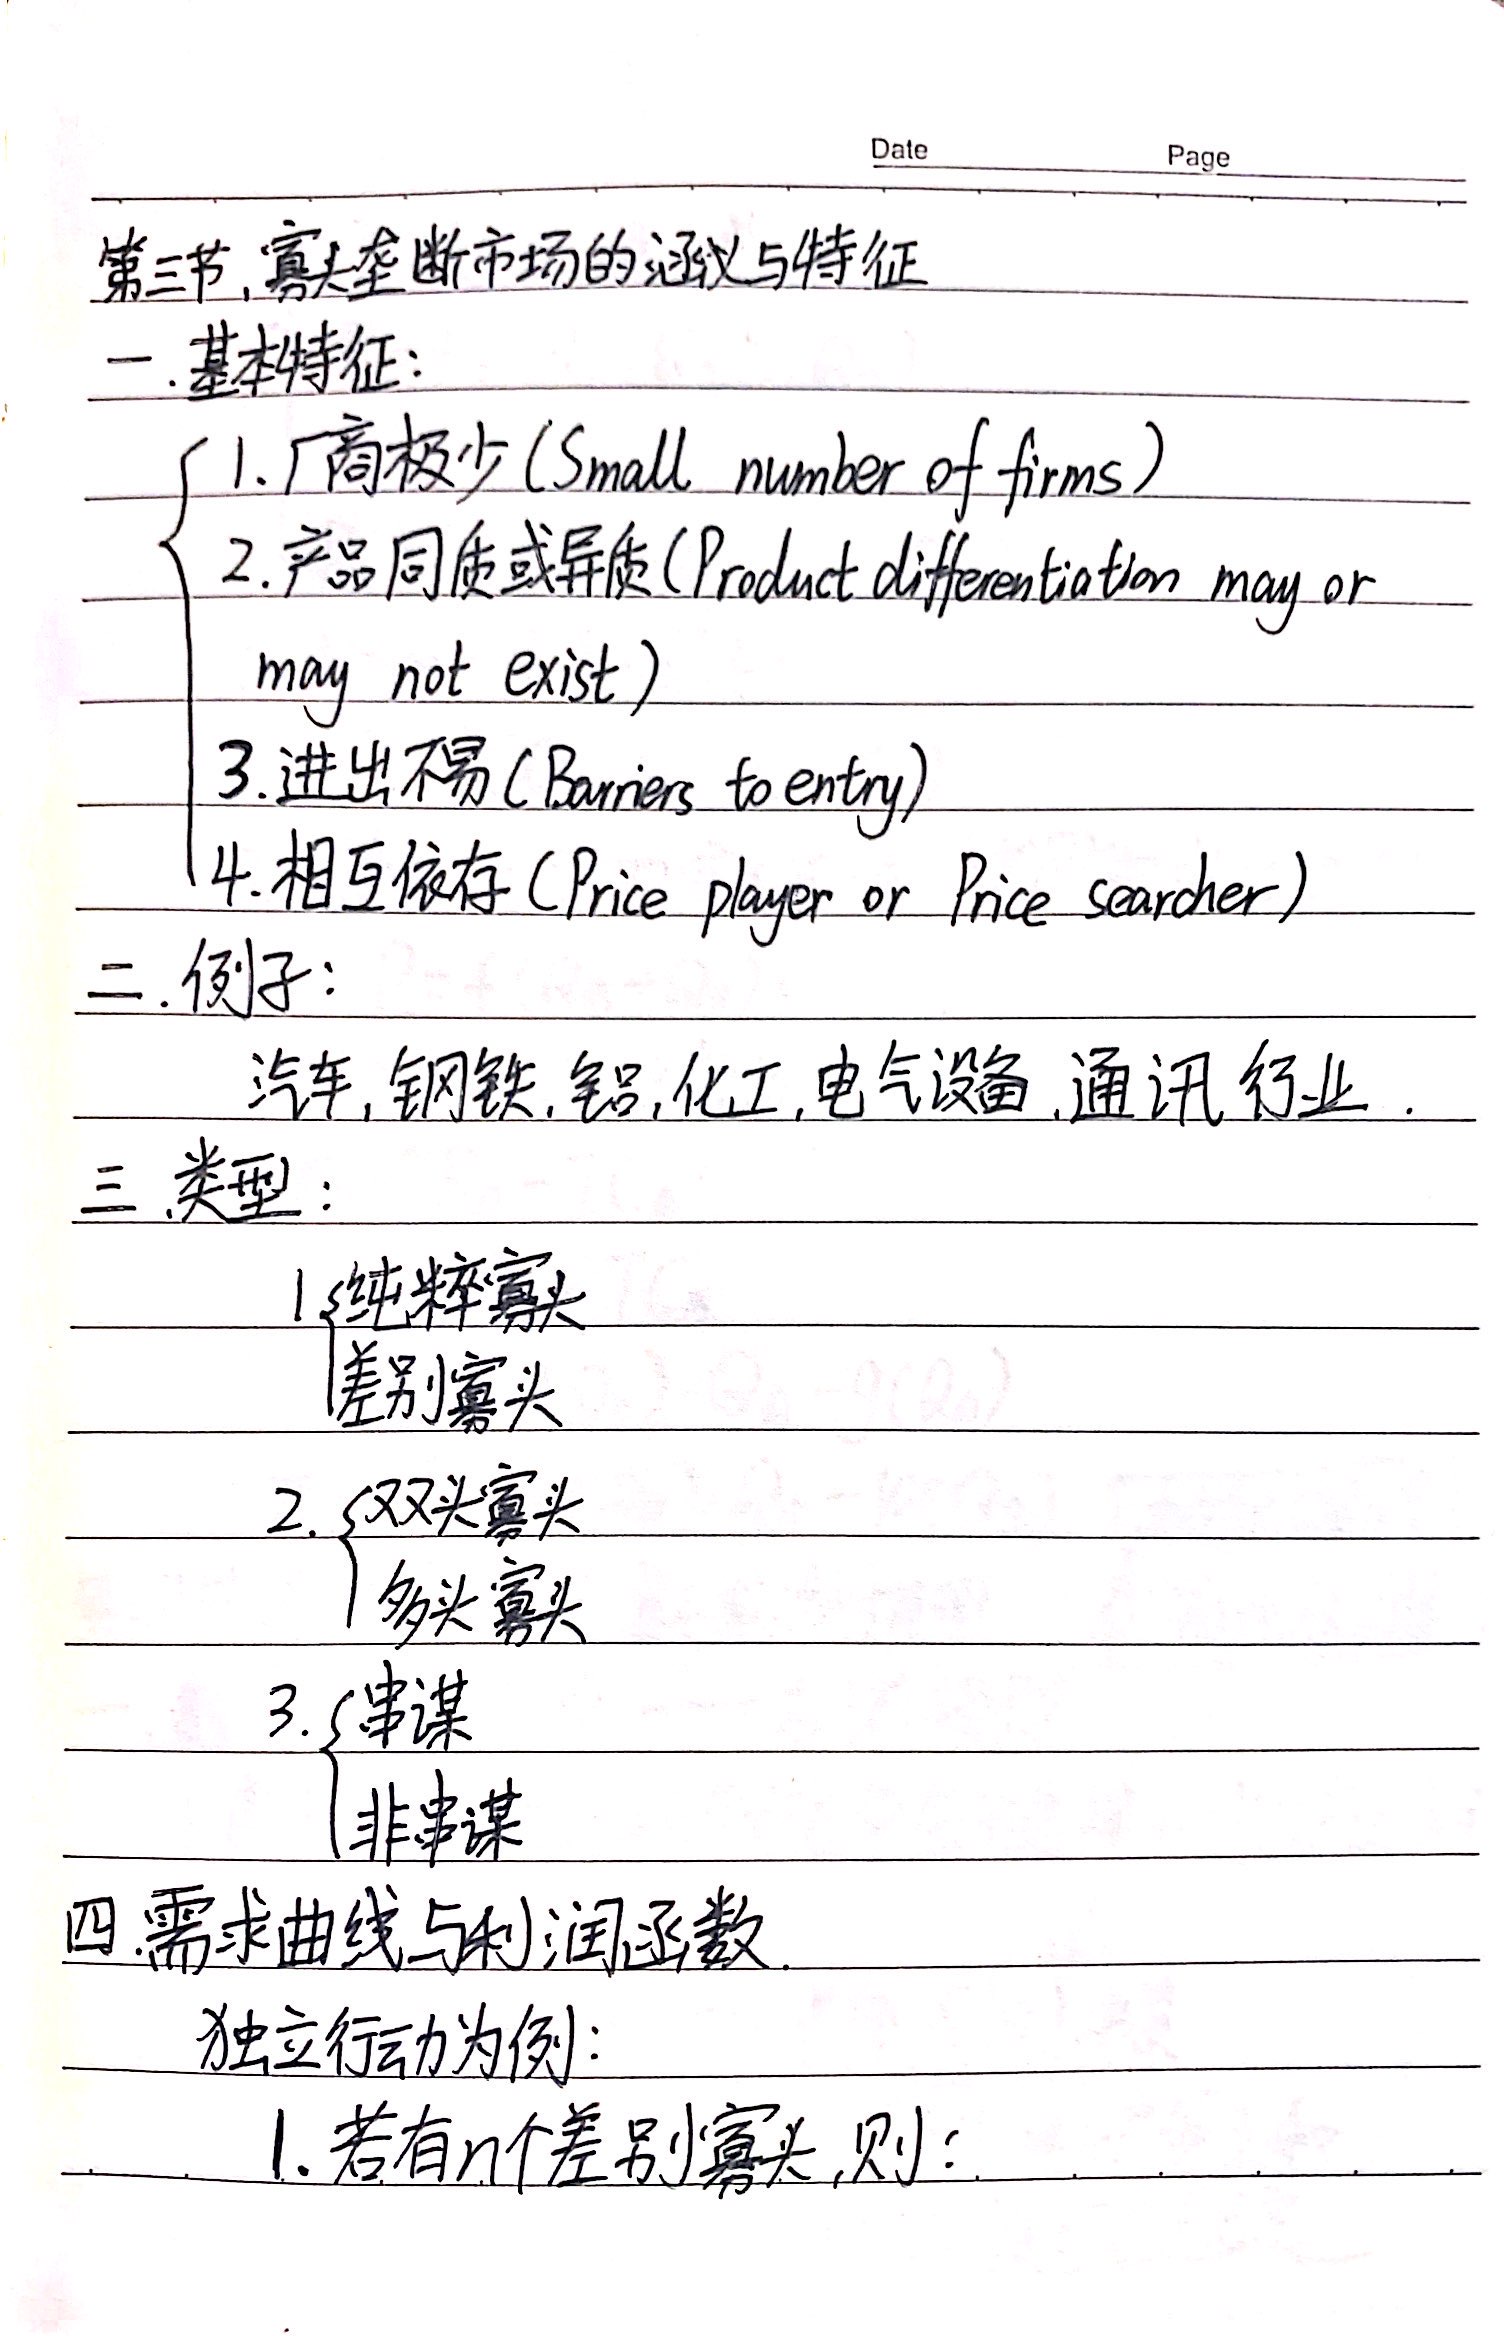 Date Page
第三节,寡头垄断市场的涵义与特征
一.基本特征:
1.厂商极少(Small number of firms)
2.产品同质或异质(Product differentiation may or
may not exist)
3.进出不易(Barriers to entry)
4.相互依存(Price player or Price searcher)
二.例子:
汽车,钢铁,铝,化工,电气设备,通讯行业.
三.类型:
1.纯粹寡头
差别寡头
2.双头寡头
多头寡头
3.串谋
非串谋
四.需求曲线与利润函数.
独立行动为例:
1.若有n个差别寡头,则: